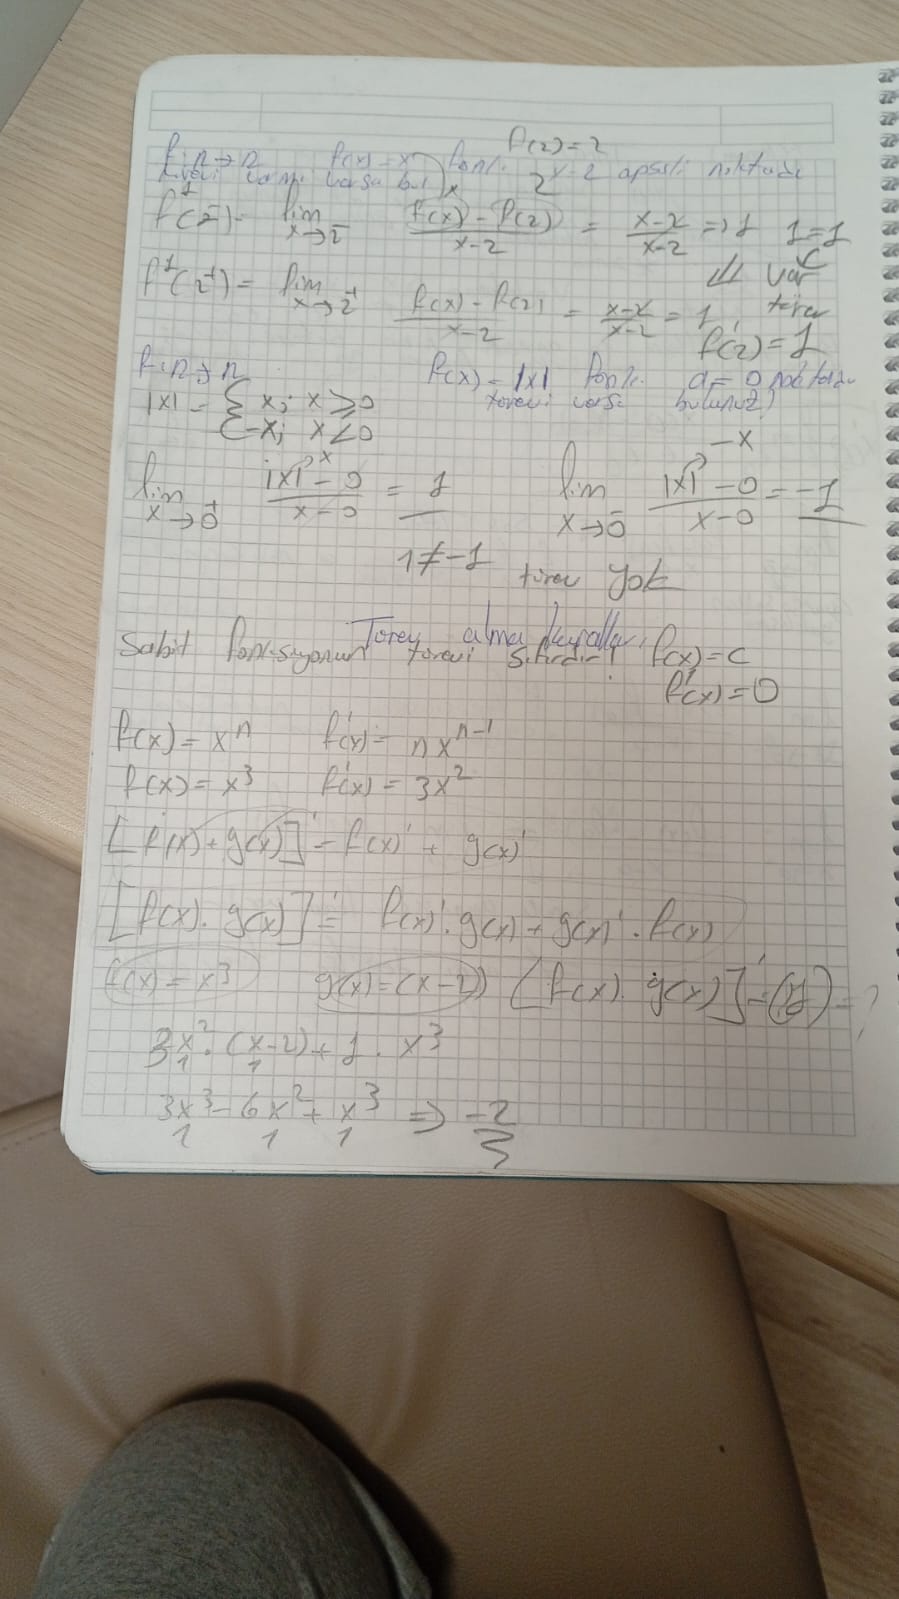 f(2)=2
f: R→R f(x)=x fonk. x=2 apsisli noktada
türevi varmı varsa bul
f'(2⁻)= lim x→2⁻ f(x)-f(2)/x-2 = x-2/x-2 => 1 1=1
var
f'(2⁺)= lim x→2⁺ f(x)-f(2)/x-2 = x-2/x-2 = 1 türev
f'(2)=1
f: R→R f(x)=|x| fonk. a=0 noktada
|x| = { x; x≥0 türevi varsa bulunuz?
{ -x; x<0
lim x→0⁺ |x|-0/x-0 = 1 lim x→0⁻ |x|-0/x-0 = -1
1≠-1 türev yok
Türev alma kuralları
Sabit fonksiyonun türevi sıfırdır! f(x)=c
f'(x)=0
f(x)=xⁿ f'(x)= nxⁿ⁻¹
f(x)=x³ f'(x)= 3x²
[f(x)+g(x)]' = f(x)' + g(x)'
[f(x).g(x)]' = f(x)'.g(x)+g(x)'.f(x)
f(x)=x³ g(x)=(x-2) [f(x).g(x)]'=(1)=?
3x².(x-2)+1.x³
1 1
3x³-6x²+x³ => -2
1 1 1